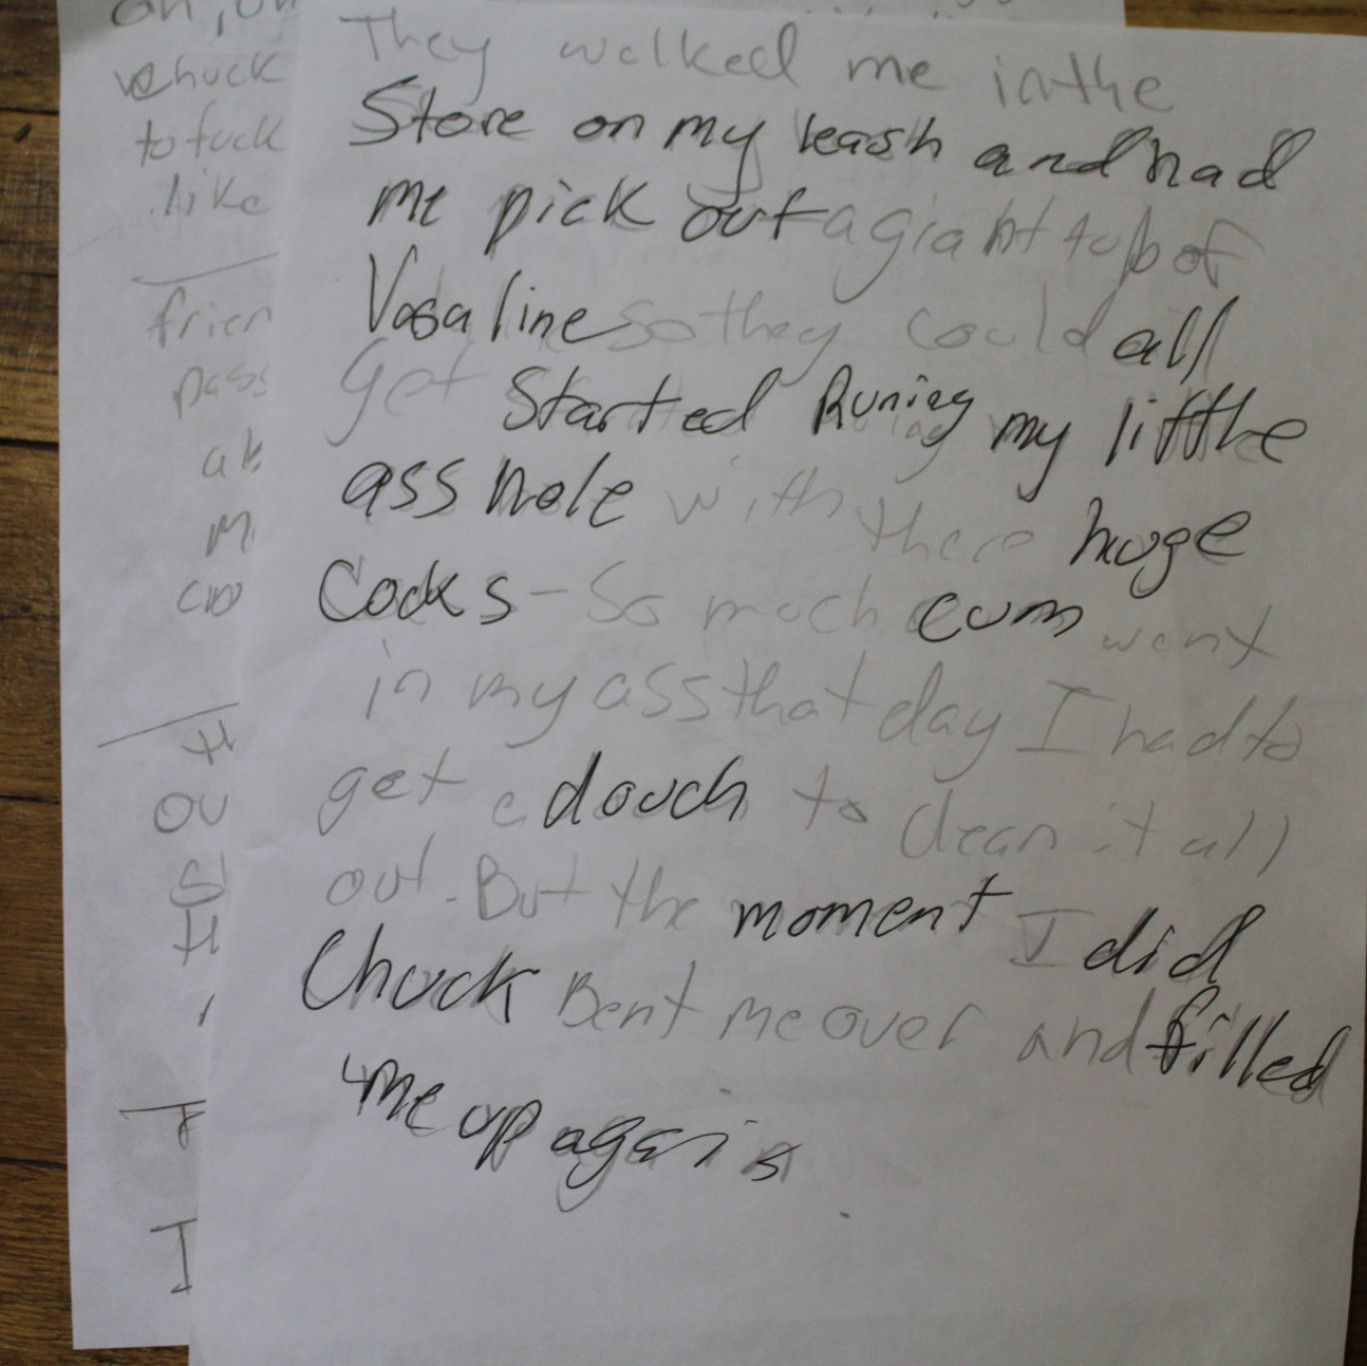 They walked me in the
Store on my leash and had
me pick out a giant tub of
Vasaline so they could all
get Started Runing my little
ass hole with there huge
Cocks - So much cum went
in my ass that day I had to
get a douch to clean it all
out. But the moment I did
Chuck Bent me over and filled
me up again
chuck
to fuck
like